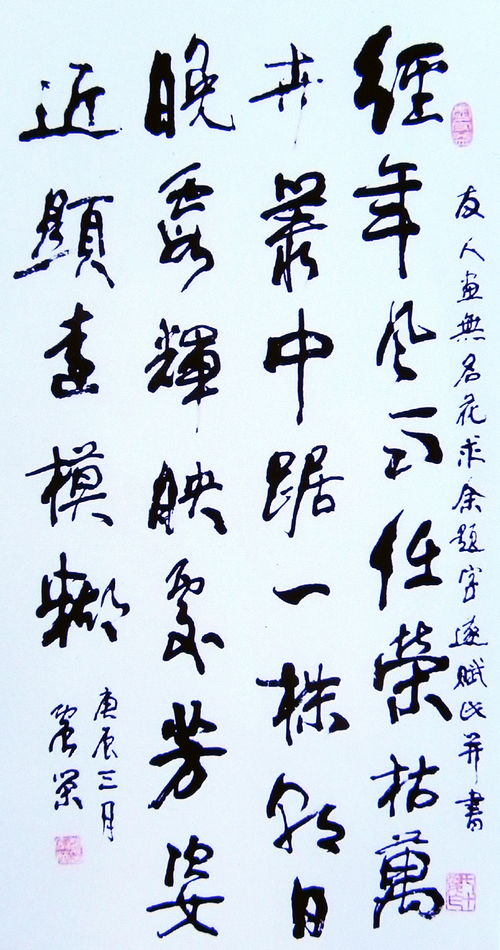 友人畫無名花求余題字遂賦此并書
經年風雨任榮枯萬
卉叢中踞一株朝日
晚霞輝映處芳姿
近顯遠模糊
庚辰三月